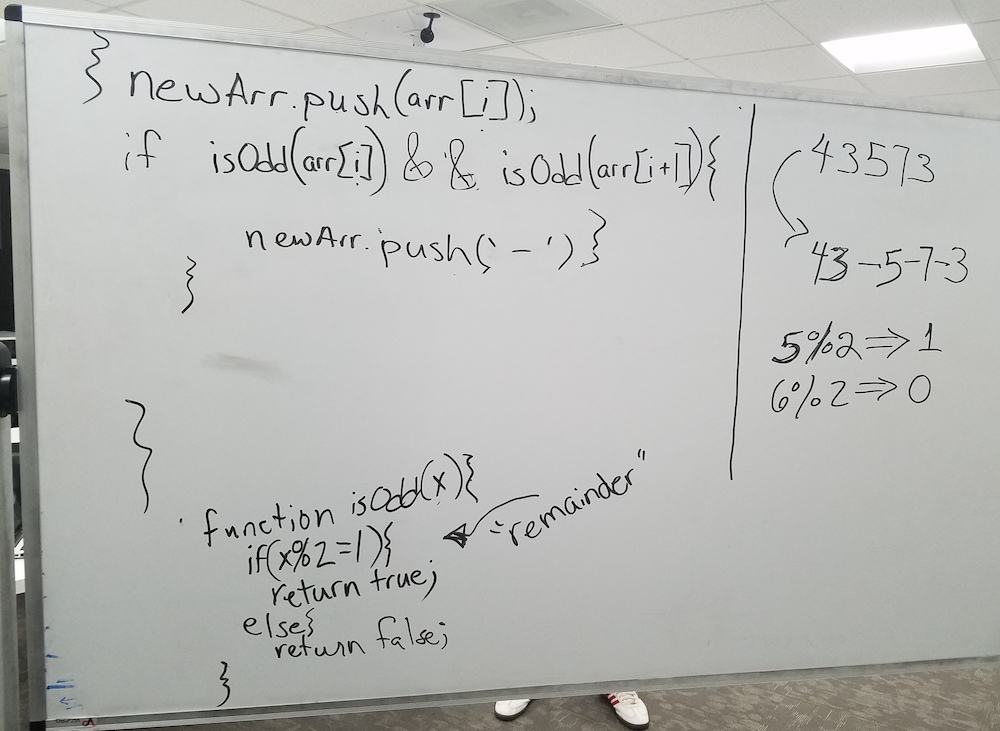 } newArr.push(arr[i]);
if isOdd(arr[i]) && isOdd(arr[i+1]){
newArr.push('-')}
}
}
function isOdd(x){
if(x%2=1){
return true;
else{
return false;
}
"remainder"
43573
43-5-7-3
5%2=>1
6%2=>0